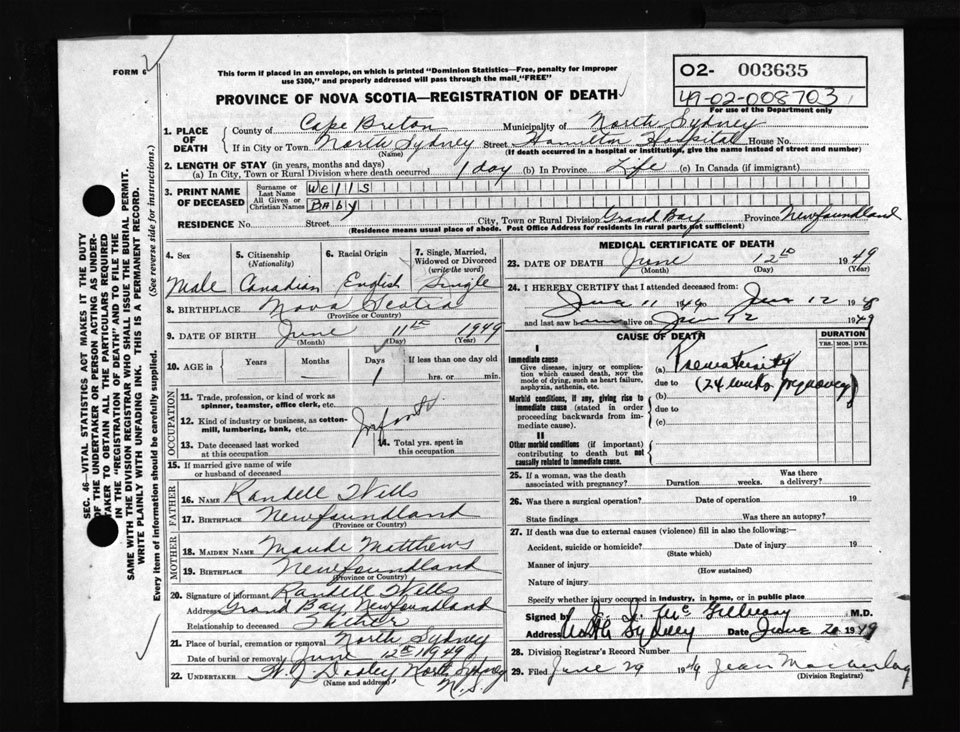 FORM 6
This form if placed in an envelope, on which is printed "Dominion Statistics—Free, penalty for improper
use $300," and properly addressed will pass through the mail "FREE"
02- 003635
49-02-008703
For use of the Department only
PROVINCE OF NOVA SCOTIA—REGISTRATION OF DEATH
1. PLACE OF DEATH
County of Cape Breton Municipality of North Sydney
If in City or Town North Sydney Street Hamilton Hospital House No.
(Name) (If death occurred in a hospital or institution, give the name instead of street and number)
2. LENGTH OF STAY (in years, months and days)
(a) In City, Town or Rural Division where death occurred 1 day (b) In Province Life (c) In Canada (if immigrant)
3. PRINT NAME OF DECEASED
Surname or Last Name Wells
All Given or Christian Names Baby
RESIDENCE No. Street City, Town or Rural Division Grand Bay Province Newfoundland
(Residence means usual place of abode. Post Office Address for residents in rural parts not sufficient)
4. Sex Male
5. Citizenship (Nationality) Canadian
6. Racial Origin English
7. Single, Married, Widowed or Divorced (write the word) Single
8. BIRTHPLACE Nova Scotia
(Province or Country)
9. DATE OF BIRTH June 11th 1949
(Month) (Day) (Year)
10. AGE in Years Months Days If less than one day old
— 1 hrs. or min.
OCCUPATION
11. Trade, profession, or kind of work as
spinner, teamster, office clerk, etc.
12. Kind of industry or business, as cotton-
mill, lumbering, bank, etc.
Infant
13. Date deceased last worked
at this occupation
14. Total yrs. spent in
this occupation
15. If married give name of wife
or husband of deceased
FATHER
16. NAME Randell Wells
17. BIRTHPLACE Newfoundland
(Province or Country)
MOTHER
18. MAIDEN NAME Maude Matthews
19. BIRTHPLACE Newfoundland
(Province or Country)
20. Signature of informant Randell Wells
Address Grand Bay, Newfoundland
Relationship to deceased Father
21. Place of burial, cremation or removal North Sydney
Date of burial or removal June 12th 1949
22. UNDERTAKER W. J. Dooley, North Sydney
N.S.
(Name and address)
MEDICAL CERTIFICATE OF DEATH
23. DATE OF DEATH June 12th 1949
(Month) (Day) (Year)
24. I HEREBY CERTIFY that I attended deceased from:
June 11 1949 to June 12 194
and last saw alive on June 12 1949
CAUSE OF DEATH
DURATION
YRS. MOS. DYS.
I
Immediate cause
Give disease, injury or complica-
tion which caused death, NOR the
mode of dying, such as heart failure,
asphyxia, asthenia, etc.
(a) Prematurity
due to (24 weeks pregnancy)
Morbid conditions, if any, giving rise to
immediate cause (stated in order
proceeding backwards from im-
mediate cause).
(b)
due to
(c)
II
Other morbid conditions (if important)
contributing to death but not
causally related to immediate cause.
25. If a woman, was the death
associated with pregnancy? Duration weeks. Was there
a delivery?
26. Was there a surgical operation? Date of operation 19
State findings Was there an autopsy?
27. If death was due to external causes (violence) fill in also the following:—
Accident, suicide or homicide? Date of injury 19
(State which)
Manner of injury
(How sustained)
Nature of injury
Specify whether injury occurred in industry, in home, or in public place
Signed by McGillivray M.D.
Address North Sydney Date June 20 1949
28. Division Registrar's Record Number
29. Filed June 29 1949 Jean
(Division Registrar)
SEC. 46—VITAL STATISTICS ACT MAKES IT THE DUTY
OF THE UNDERTAKER OR PERSON ACTING AS UNDER-
TAKER TO OBTAIN ALL THE PARTICULARS REQUIRED
IN THE "REGISTRATION OF DEATH" AND TO FILE THE
SAME WITH THE DIVISION REGISTRAR WHO SHALL ISSUE THE BURIAL PERMIT.
WRITE PLAINLY WITH UNFADING INK. THIS IS A PERMANENT RECORD.
Every item of information should be carefully supplied. (See reverse side for instructions.)